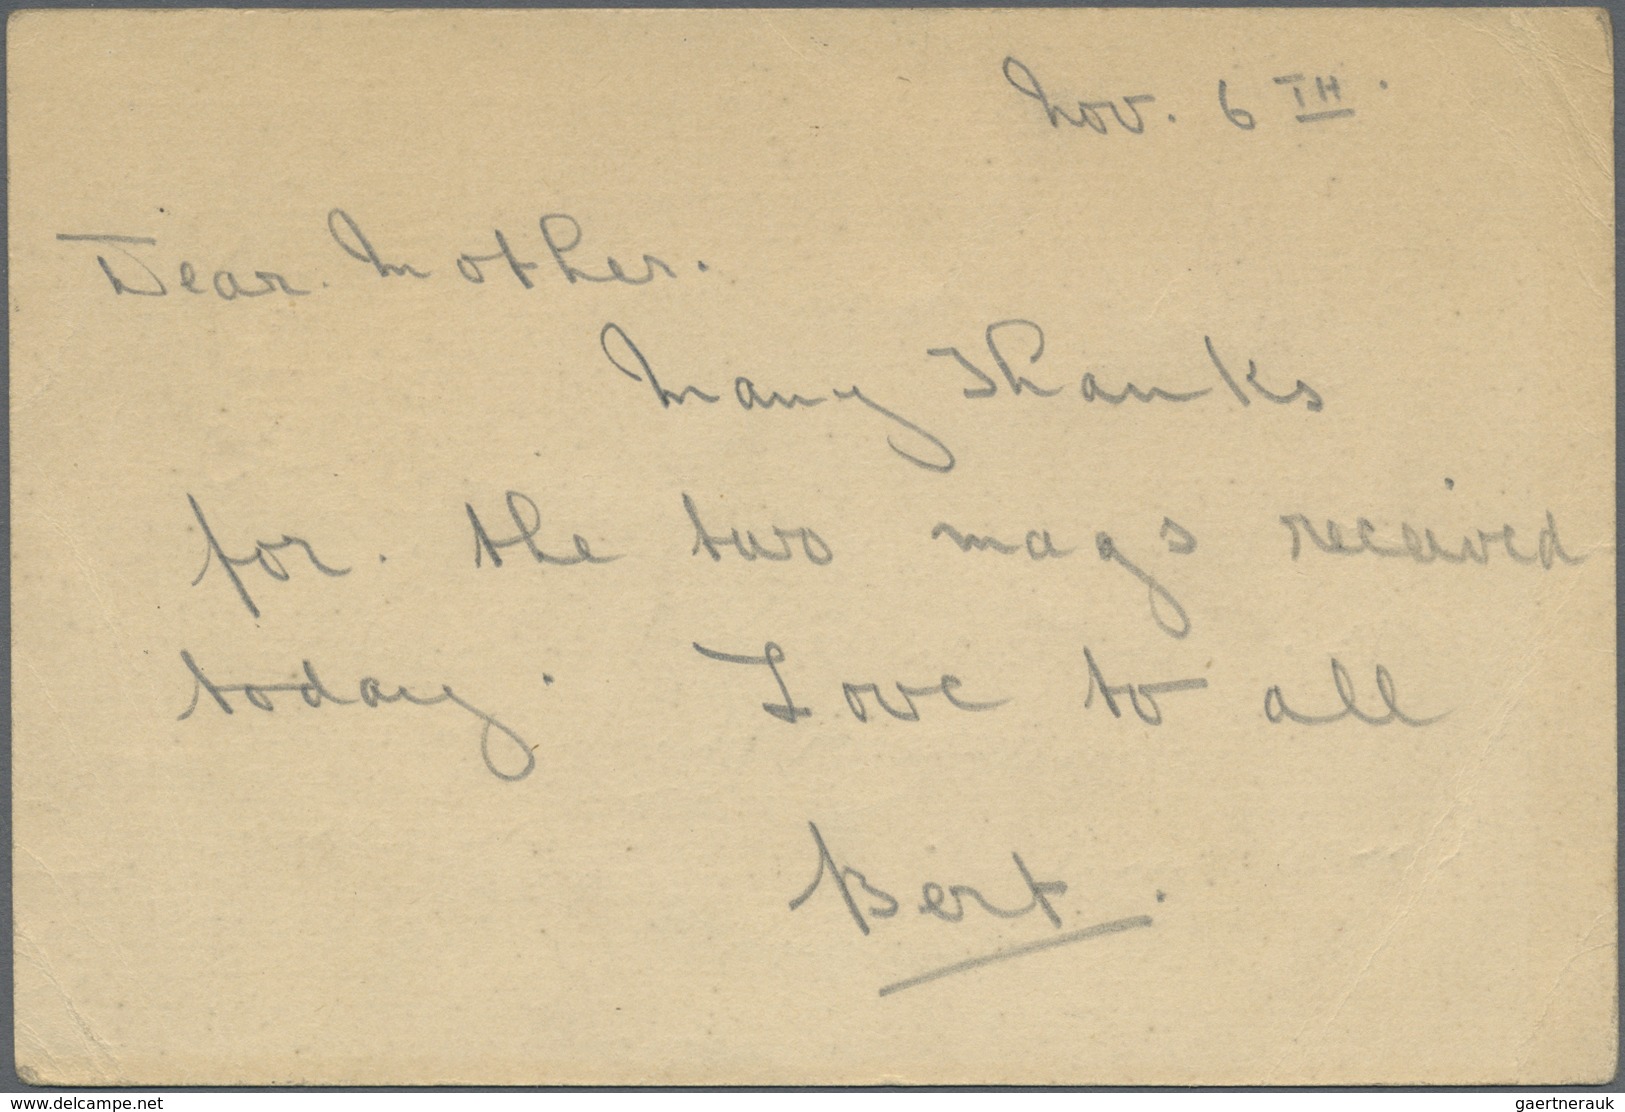 Nov. 6TH.
Dear. Mother.
Many Thanks
for. the two mags received
today. Love to all
Bert.
www.delcampe.net
gaertnerauk